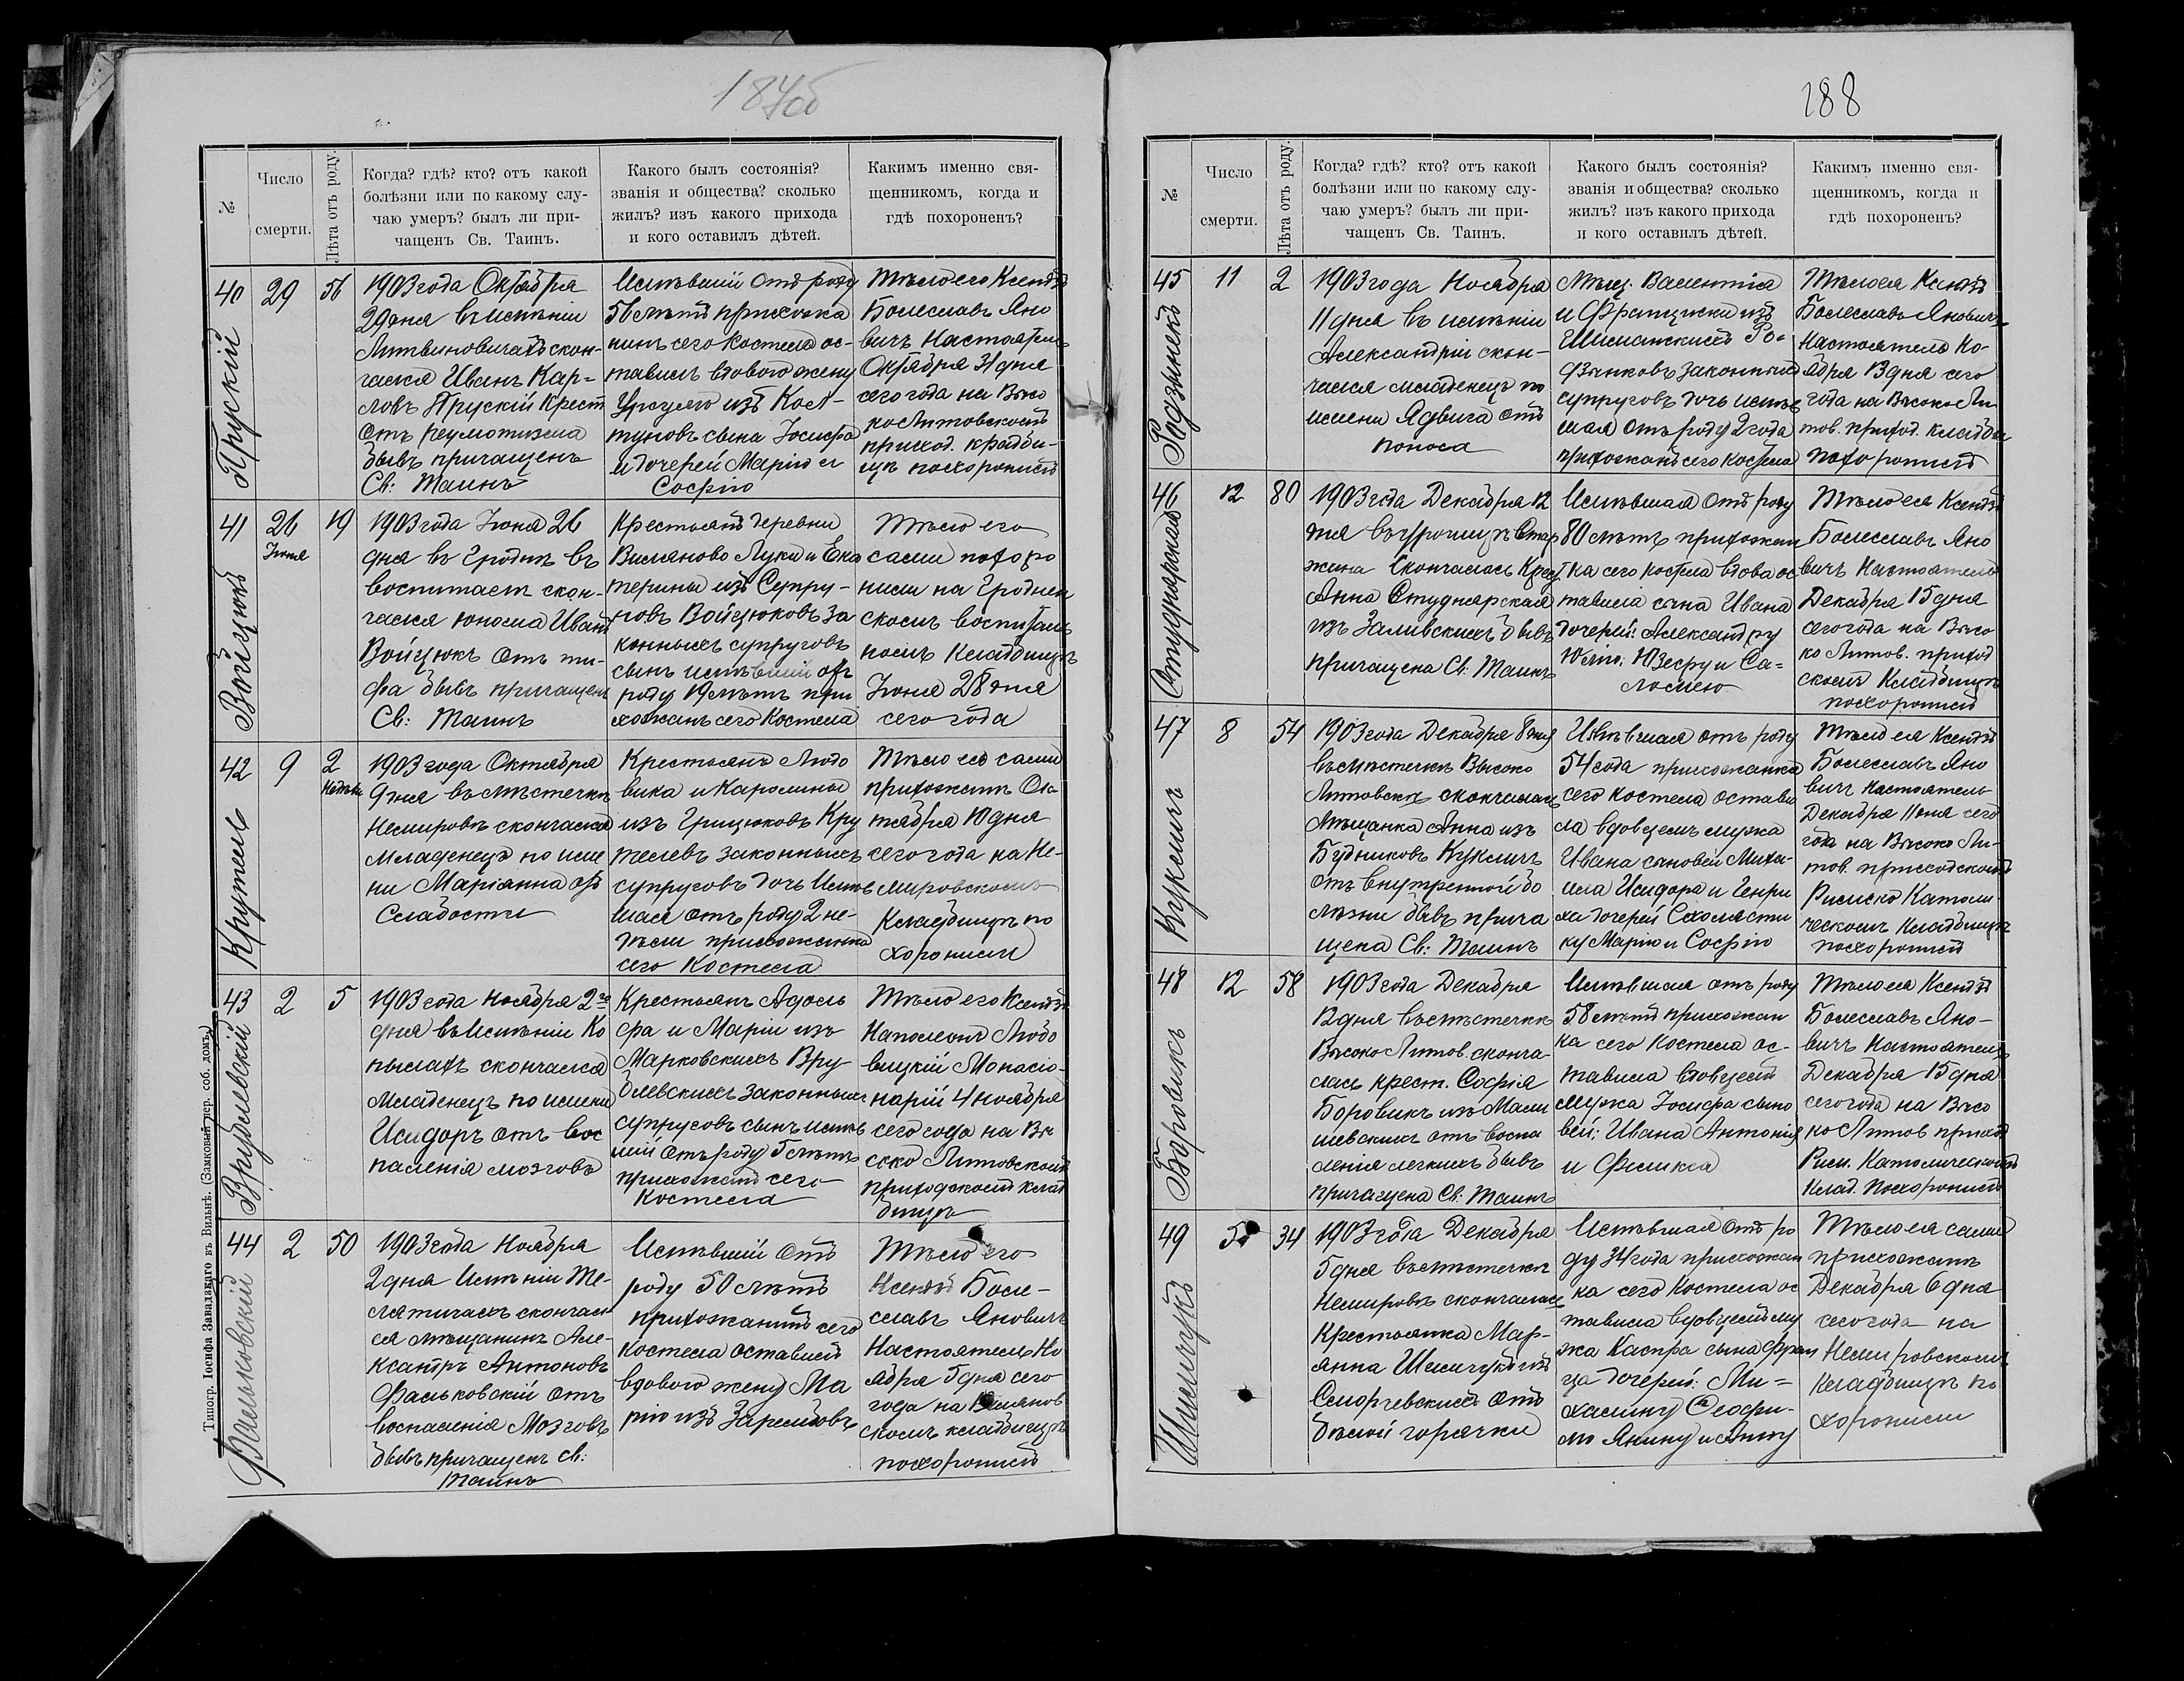 187об
№
Число
смерти.
Лѣта отъ роду.
Когда? гдѣ? кто? отъ какой
болѣзни или по какому слу-
чаю умеръ? былъ ли при-
чащенъ Св. Таинъ.
Какого былъ состоянія?
званія и общества? сколько
жилъ? изъ какого прихода
и кого оставилъ дѣтей.
Какимъ именно свя-
щенникомъ, когда и
гдѣ похороненъ?
40
Прускій
29
56
1903 года Октября
29 дня въ имѣніи
Литвиновичахъ скон-
чался Иванъ Кар-
ловъ Прускій Крест
Отъ реуматизма
бывъ причащенъ
Св: Таинъ
Имѣвшій отъ роду
56 лѣтъ прихожа
нинъ сего Костела ос-
тавилъ вдовою жену
Урсулю изъ Кос-
туховъ сына Іосифа
и дочерей Марію и
Софію
Тѣло его Ксендзъ
Болеславъ Яно
вичъ Настоятель
Октября 31 дня
сего года на Высо
ко Литовскомъ
приход. кладби-
щѣ похоронилъ
41
Войцюкъ
26
Іюня
19
1903 года Іюня 26
дня въ Гроднѣ въ
воспитает скон-
чался юноша Иванъ
Войцюкъ отъ ти-
фа бывъ причащенъ
Св: Таинъ
Крестьянъ деревни
Вилянова Луки и Ека
терины изъ Супру-
новъ Войцюковъ за
конныхъ супруговъ
сынъ имѣвшій отъ
роду 19 лѣтъ при
хожанъ сего Костела
Тѣло его
сами похоро
нили на Гроднен
скомъ воспитатель
номъ Кладбищѣ
Іюня 28 дня
сего года
42
Крутель
9
2
Недѣли
1903 года Октября
9 дня въ мѣстечкѣ
Немировѣ скончался
Младенецъ по име
ни Маріанна отъ
Слабости
Крестьянъ Людо
вика и Каролины
изъ Грицюковъ Кру
телевъ законныхъ
супруговъ дочь Имѣв
шая отъ роду 2 не-
дѣли прихожанка
сего Костела
Тѣло его сами
прихожане Ок
тября 10 дня
сего года на Не-
мировскомъ
Кладбищѣ по
хоронили
43
Врублевскій
2
5
1903 года Ноября 2го
дня въ Имѣніи Ко
пылахъ скончался
Младенецъ по имени
Исидоръ отъ вос
паленія мозговъ
Крестьянъ Адоль
фа и Маріи изъ
Марковскихъ Вру-
блевскихъ законныхъ
супруговъ сынъ имѣв
шій отъ роду 5 лѣтъ
прихожанъ сего
Костела
Тѣло его Ксендзъ
Наполеонъ Любо
вицкій Монасіо-
нарій 4 Ноября
сего года на Вы
соко Литовскомъ
приходскомъ клад
бищѣ
44
Фальковскій
2
50
1903 года Ноября
2 дня Имѣніи Те-
лятичахъ скончал
ся мѣщанинъ Але-
ксандръ Антоновъ
Фальковскій отъ
воспаленія Мозговъ
бывъ причащенъ Св:
Таинъ
Имѣвшій отъ
роду 50 лѣтъ
прихожанинъ сего
Костела оставилъ
вдовою жену Ма
рію изъ
Тѣло его
Ксендзъ Боле-
славъ Яновичъ
Настоятель Но
ября 5 дня сего
года на Вилянов
скомъ кладбищѣ
похоронилъ
Типогр. Іосифа Завадзкаго въ Вильнѣ. (Замковый пер. соб. домъ.)
188
№
Число
смерти.
Лѣта отъ роду.
Когда? гдѣ? кто? отъ какой
болѣзни или по какому слу-
чаю умеръ? былъ ли при-
чащенъ Св. Таинъ.
Какого былъ состоянія?
званія и общества? сколько
жилъ? изъ какого прихода
и кого оставилъ дѣтей.
Какимъ именно свя-
щенникомъ, когда и
гдѣ похороненъ?
45
Родзынекъ
11
2
1903 года Ноября
11 дня въ имѣніи
Александріи скон-
чался младенецъ по
имени Ядвига отъ
поноса
Мѣщ. Валентія
и Францишки изъ
Шиманскихъ Ро-
дзынковъ законныхъ
супруговъ дочь имѣв
шая отъ роду 2 года
прихожанъ сего Костела
Тѣло ея Ксендзъ
Болеславъ Яновичъ
Настоятель Но-
ября 13 дня сего
года на Высоко Ли
тов. приход. кладби
похоронилъ
46
Студнярская
12
80
1903 года Декабря 12
дня въ урочищѣ Стар
жина Скончалась Крест
Анна Студнярская
изъ Заливскихъ бывъ
причащена Св: Таинъ
Имѣвшая отъ роду
80 лѣтъ прихожан
ка сего Костела вдова ос
тавила сына Ивана
дочерей: Александру
Юлію, Юзефу и Са-
ломею
Тѣло ея Ксендзъ
Болеславъ Яно
вичъ Настоятель
Декабря 15 дня
сего года на Высо
ко Литов. приход
скомъ Кладбищѣ
похоронилъ
47
Куклишъ
8
54
1903 года Декабря 8 дня
въ мѣстечкѣ Высоко
Литовскѣ скончалась
Мѣщанка Анна изъ
Будниковъ Куклишъ
отъ внутренной бо
лѣзни бывъ прича
щена Св: Таинъ
Имѣвшая отъ роду
54 года прихожанка
сего Костела остави
ла вдовцемъ мужа
Ивана сыновей Миха-
ила Исидора и Генри
ха дочерей Схоласти
ку Марію и Софію
Тѣло ея Ксендзъ
Болеславъ Яно
вичъ Настоятель
Декабря 11 дня сего
года на Высоко Ли-
тов. приходскомъ
Римско Католи
ческомъ Кладбищѣ
похоронилъ
48
Боровикъ
12
58
1903 года Декабря
12 дня въ мѣстечкѣ
Высоко Литов. сконча-
лась крест. Софія
Боровикъ изъ Мали
шевскихъ отъ воспа
ленія легкихъ бывъ
причащена Св: Таинъ
Имѣвшая отъ роду
58 лѣтъ прихожан
ка сего Костела ос-
тавила вдовцемъ
мужа Іосифа сыно
вей: Ивана Антонія
и Феликса
Тѣло ея Ксендзъ
Болеславъ Яно-
вичъ Настоятель
Декабря 15 дня
сего года на Высо
ко Литов приход
Рим. Католическомъ
Клад. Похоронилъ
49
Шимчукъ
5
34
1903 года Декабря
5 дня въ мѣстечкѣ
Немировѣ скончалась
Крестьянка Мар-
янна Шимчукъ изъ
отъ
бѣлой горячки
Имѣвшая отъ ро
ду 34 года прихожан
ка сего Костела ос
тавила вдовцемъ му
жа Каспра сына Фран
ца дочерей: Ми-
халину Теофи-
лю Янину и Анну
Тѣло ея сами
прихожане
Декабря 6 дня
сего года на
Немировскомъ
Кладбищѣ по
хоронили